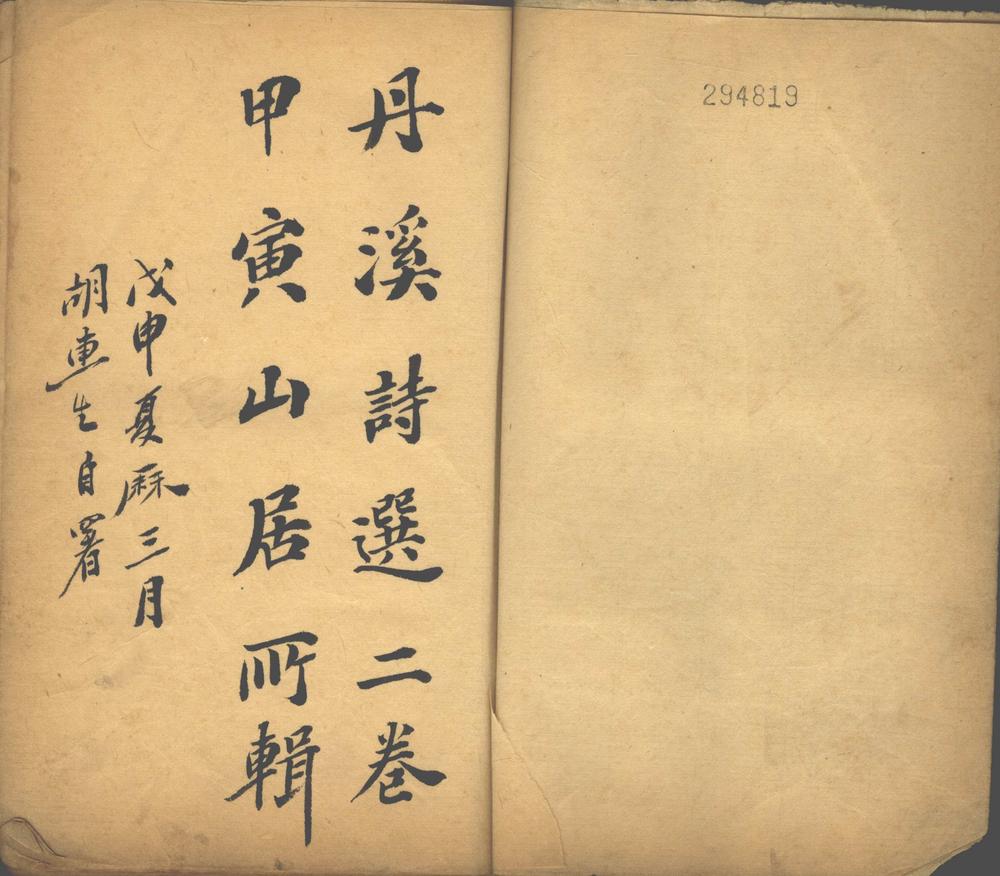 294819
丹溪詩選二卷
甲寅山居所輯
戊申夏厤三月
胡惠生自署